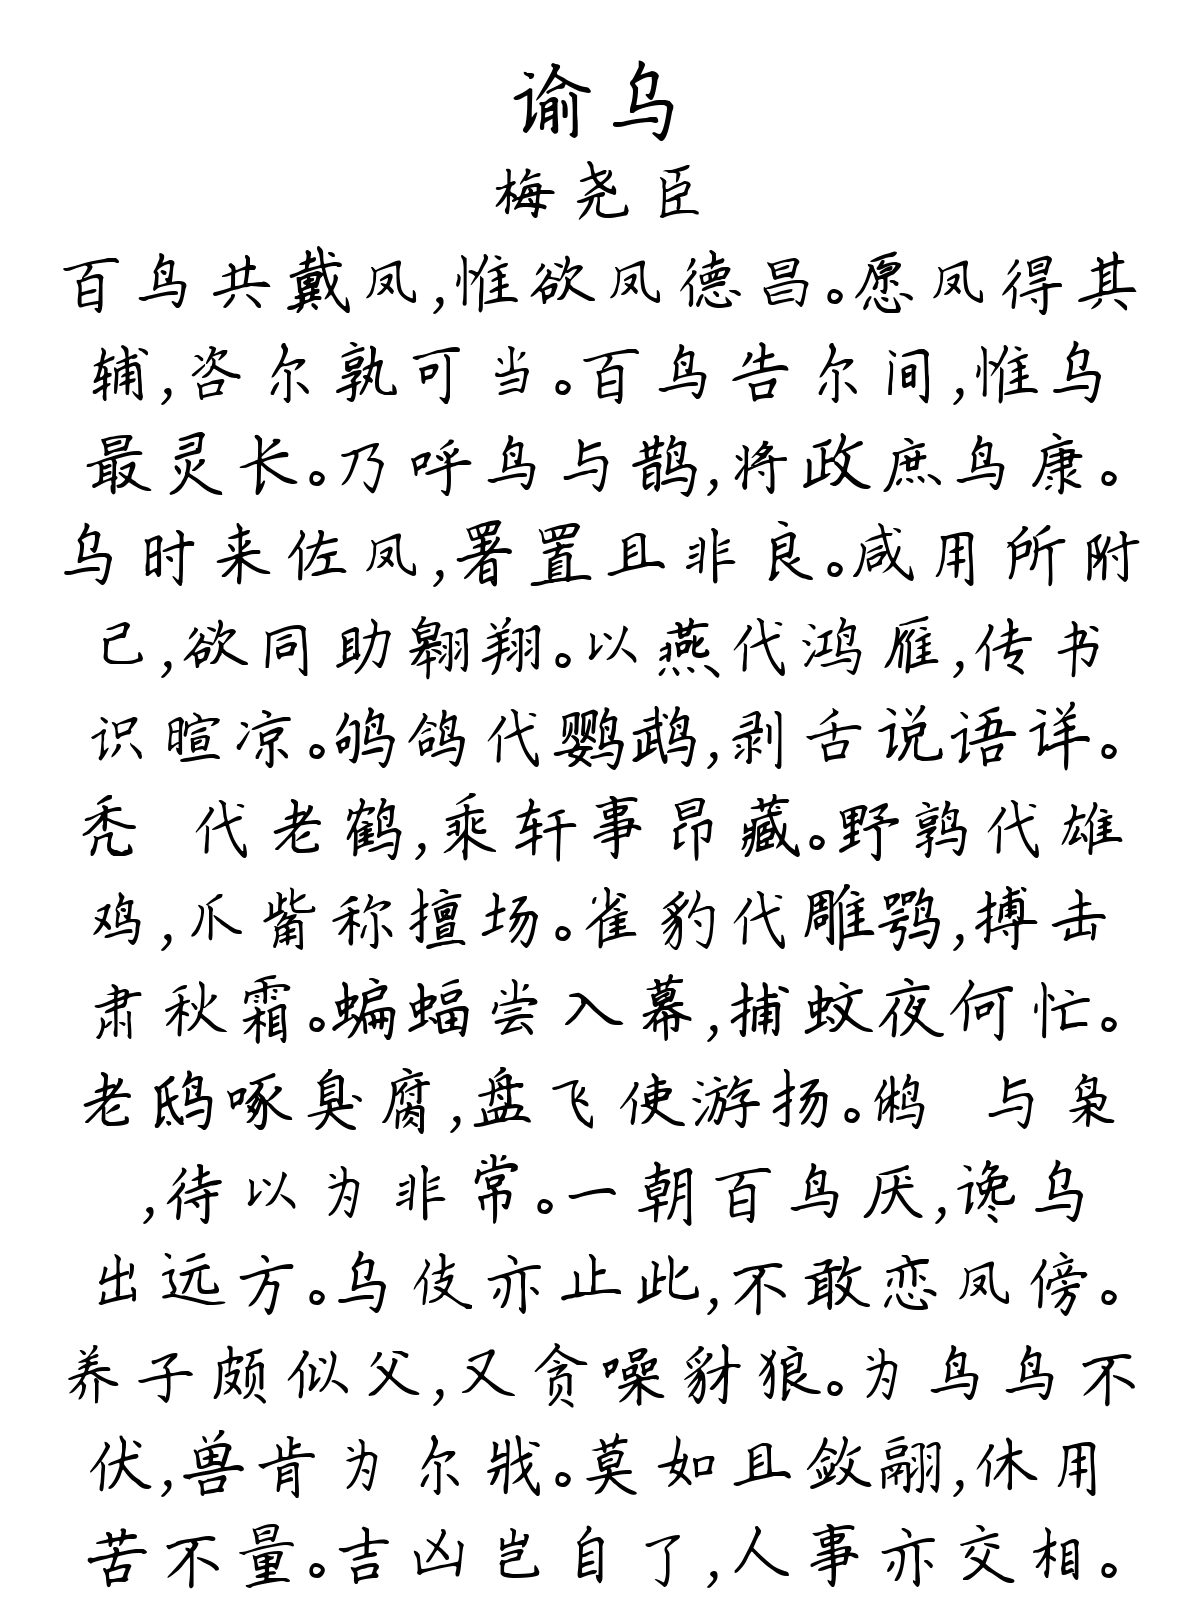 谕乌
梅尧臣
百鸟共戴凤,惟欲凤德昌。愿凤得其
辅,咨尔孰可当。百鸟告尔间,惟乌
最灵长。乃呼鸟与鹊,将政庶鸟康。
乌时来佐凤,署置且非良。咸用所附
己,欲同助翱翔。以燕代鸿雁,传书
识暄凉。鸲鸽代鹦鹉,剥舌说语详。
秃 代老鹤,乘轩事昂藏。野鹑代雄
鸡,爪觜称擅场。雀豹代雕鹗,搏击
肃秋霜。蝙蝠尝入幕,捕蚊夜何忙。
老鸱啄臭腐,盘飞使游扬。鸺 与枭
,待以为非常。一朝百鸟厌,谗乌
出远方。乌伎亦止此,不敢恋凤傍。
养子颇似父,又贪噪豺狼。为鸟鸟不
伏,兽肯为尔戕。莫如且敛翮,休用
苦不量。吉凶岂自了,人事亦交相。